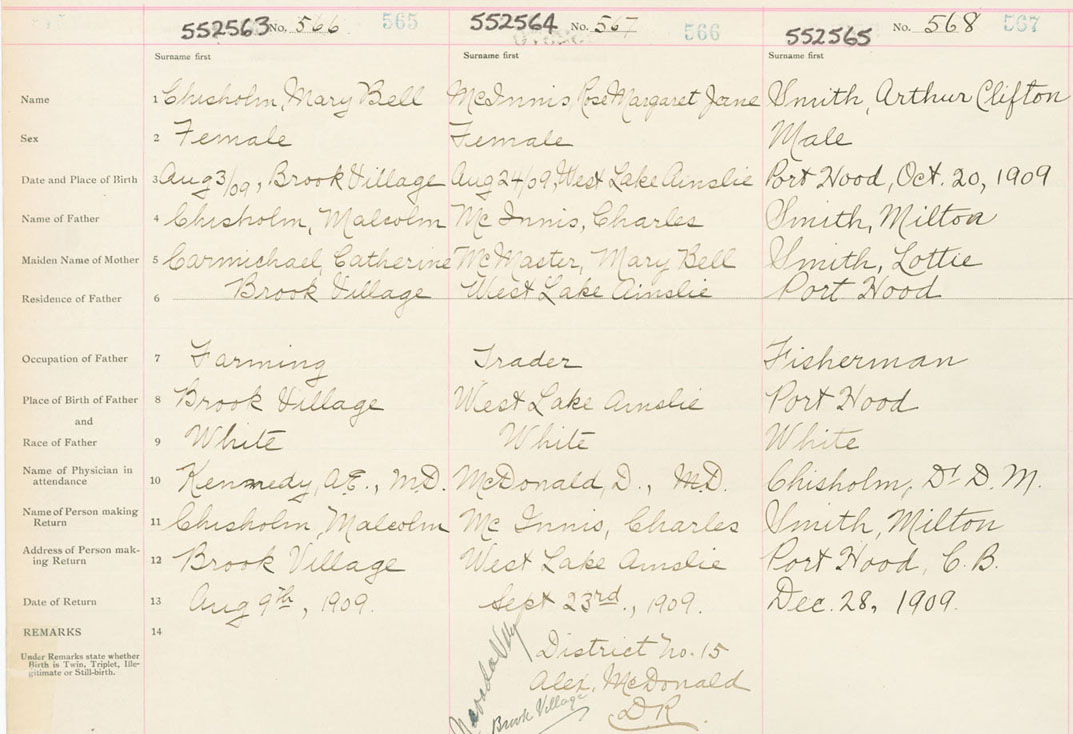 552563 No. 566 565 552564 No. 567 566 552565 No. 568 567
Surname first Surname first Surname first
Name 1 Chisholm, Mary Bell McInnis, Rose Margaret Jane Smith, Arthur Clifton
Sex 2 Female Female Male
Date and Place of Birth 3 Aug 3/09, Brook Village Aug 24/09, West Lake Ainslie Port Hood, Oct. 20, 1909
Name of Father 4 Chisholm, Malcolm Mc Innis, Charles Smith, Milton
Maiden Name of Mother 5 Carmichael, Catherine McMaster, Mary Bell Smith, Lottie
Residence of Father 6 Brook Village West Lake Ainslie Port Hood
Occupation of Father 7 Farming Trader Fisherman
Place of Birth of Father 8 Brook Village West Lake Ainslie Port Hood
and
Race of Father 9 White White White
Name of Physician in
attendance 10 Kennedy, A.E., M.D. McDonald, D., M.D. Chisholm, Dr D. M.
Name of Person making
Return 11 Chisholm, Malcolm Mc Innis, Charles Smith, Milton
Address of Person mak-
ing Return 12 Brook Village West Lake Ainslie Port Hood, C. B.
Date of Return 13 Aug 9th, 1909. Sept 23rd., 1909. Dec. 28, 1909.
REMARKS 14
Under Remarks state whether
Birth is Twin, Triplet, Ille-
gitimate or Still-birth.
District No. 15
Alex. McDonald
DR
Brook Village